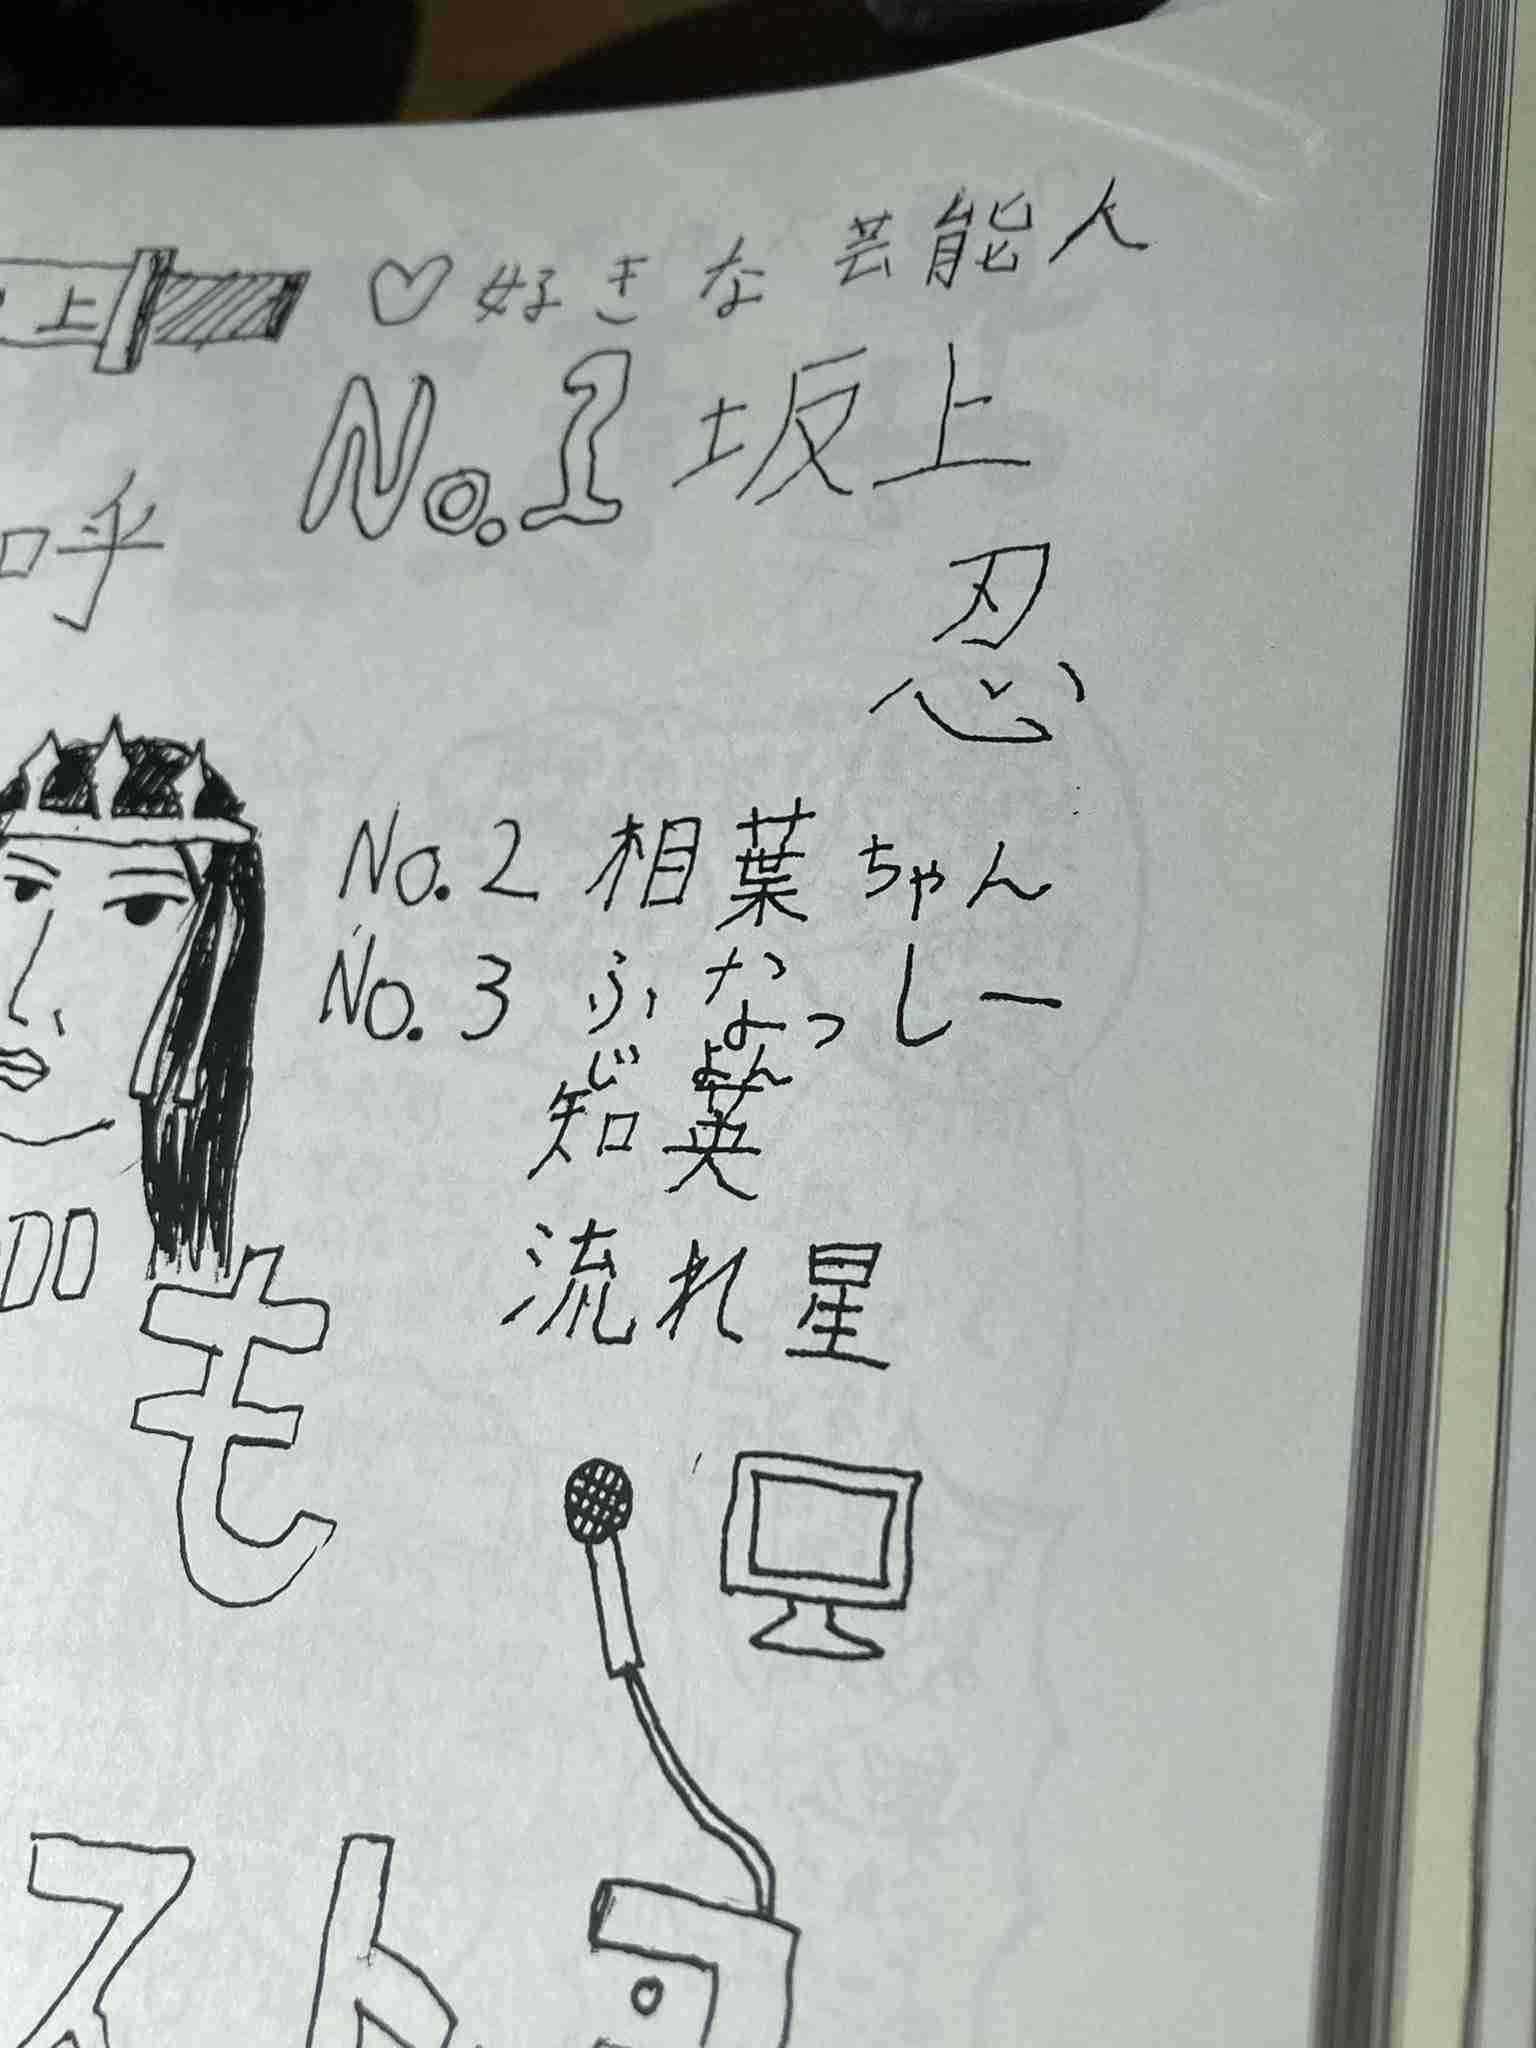 上
♡好きな芸能人
No.1 坂上
忍
呼
No.2 相葉ちゃん
No.3 ふなっしー
じよん
知英
流れ星
も
スト